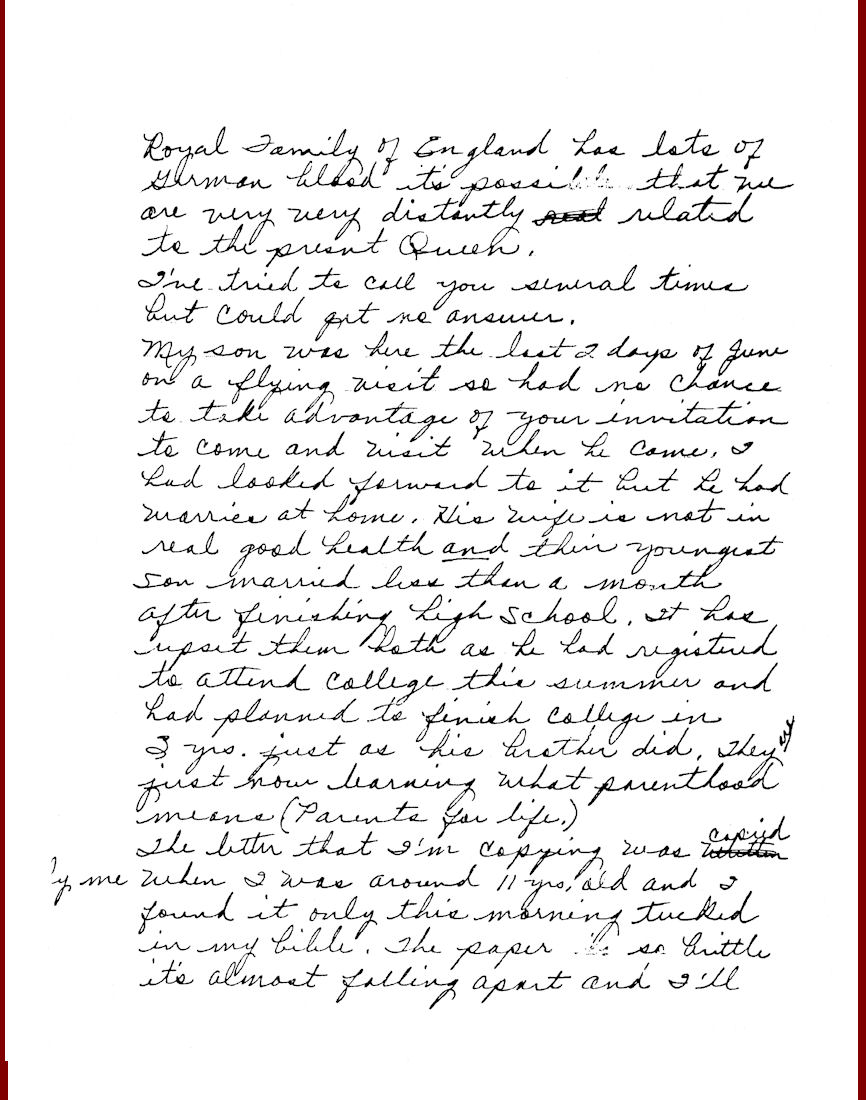 Royal Family of England has lots of
German blood it's possible that we
are very very distantly real related
to the presnt Queen.
I've tried to call you several times
but could get no answer.
My son was here the last 2 days of June
on a flying visit so had no chance
to take advantage of your invitation
to come and visit when he came. I
had looked forward to it but he had
worries at home. His wife is not in
real good health and their youngest
son married less than a month
after finishing high school. It has
upset them both as he had registered
to attend college this summer and
had planned to finish college in
3 yrs. just as his brother did. They are
just now learning what parenthood
means (Parents for life.)
The letter that I'm copying was written copied
by me when I was around 11 yrs. old and I
found it only this morning tucked
in my bible. The paper is so brittle
it's almost falling apart and I'll